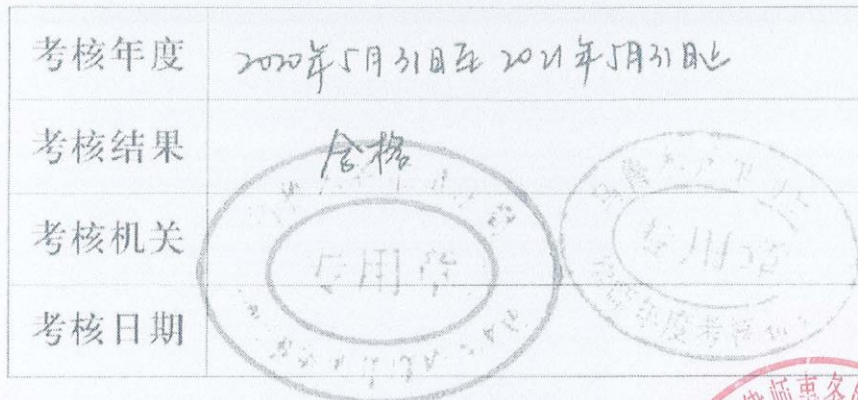 考核年度 2020年5月31日至2021年5月31日止
考核结果 合格
考核机关
考核日期
专用章
专用章
年度考核
律师事务